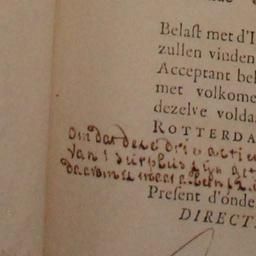 Belaſt met d'I
zullen vinden
Acceptant beh
met volkome
dezelve volda
ROTTERDA
om dat deze drie actien
van 't surplus zyn
daerom
Preſent d'onde
DIRECT